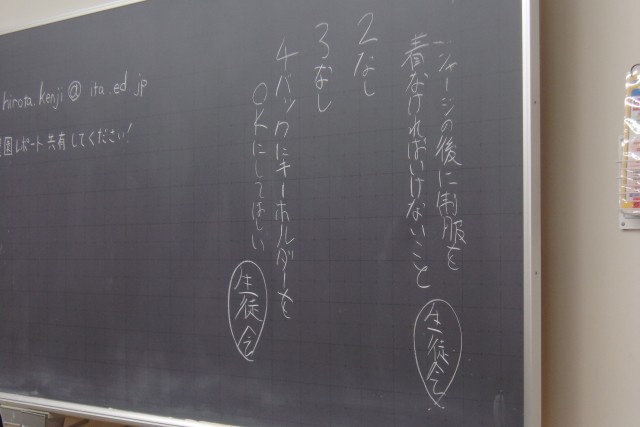 ジャージの後に制服を
着なければいけないこと
生徒会
2なし
3なし
4バックにキーホルダーを
OKにしてほしい
生徒会
hirota.kenji@ita.ed.jp
レポート共有してください!